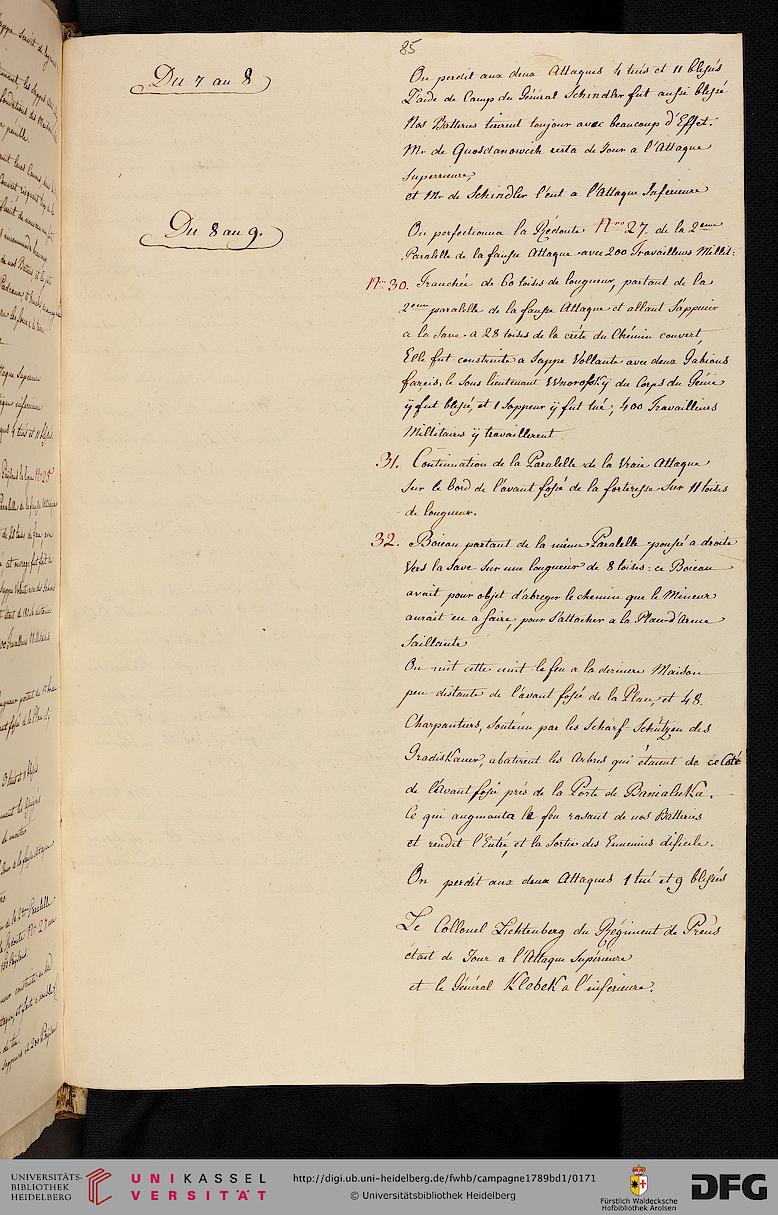 85
Du 7 au 8
On perdit aux deux Attaques 4 tués et 11 blessés
L'aide de Camp du Général Schindler fut aussi blessé
Nos Batteries tinrent toujour avec beaucoup d'Effet.
Mr de Quosdanowich resta de Jour a l'Attaque
Superieure,
et Mr de Schindler l'eut a l'Attaque Inferieure
Du 8 au 9.
On perfectionna la Rédoute Nro 27. de la 2eme
Paralelle de la fausse Attaque avec 200 Travailleurs Millit:
Nro 30. Tranchée de 60 toises de longueur, partant de la
2eme paralelle de la fausse Attaque et allant s'appuier
a la Save a 28 toises de la crète du Chémin couvert,
Elle fut construite a Sappe Vollante avec deux Gabions
farcis, le Sous lieutenant Wnorofskÿ du Corps du Génie
ÿ fut blessé, et 1 Sappeur ÿ fut tué, 400 Travailleurs
Millitaires ÿ travaillerent
31. Continuation de la Paralelle de la Vraie Attaque
Sur le bord de l'avant fossé de la forteresse Sur 11 toises
de longueur.
32. Boieau partant de la même Paralelle poussé a droite
Vers la Save Sur une longueur de 8 toises: ce Boieau
avait pour objet d'abreger le chemin que le Mineur
aurait eu a faire, pour s'attacher a la Place d'Arme
Saillante
On mit cette nuit le feu a la derniere Maison
peu distante de l'avant fossé de la Place, et 48.
Charpentiers, Soutenu par les Scharf Schützen des
Gradiskaner, abatirent les Arbres qui étaient de ce Coté
de l'Avant fossé près de la Porte de Banialuka.
Ce qui augmenta le feu rasant de nos Batteries
et rendit l'Entré, et la Sortie des Ennemies dificile.
On perdit aux deux Attaques 1 tué et 9 blessés
Le Collonel Lichtenberg du Régiment de Preïs
était de Jour a l'Attaque Supérieure
et le Général Klebek a l'inferieure.
UNIVERSITÄTS-
BIBLIOTHEK
HEIDELBERG
UNIKASSEL
VERSITÄT
http://digi.ub.uni-heidelberg.de/fwhb/campagne1789bd1/0171
© Universitätsbibliothek Heidelberg
Fürstlich Waldecksche
Hofbibliothek Arolsen
DFG